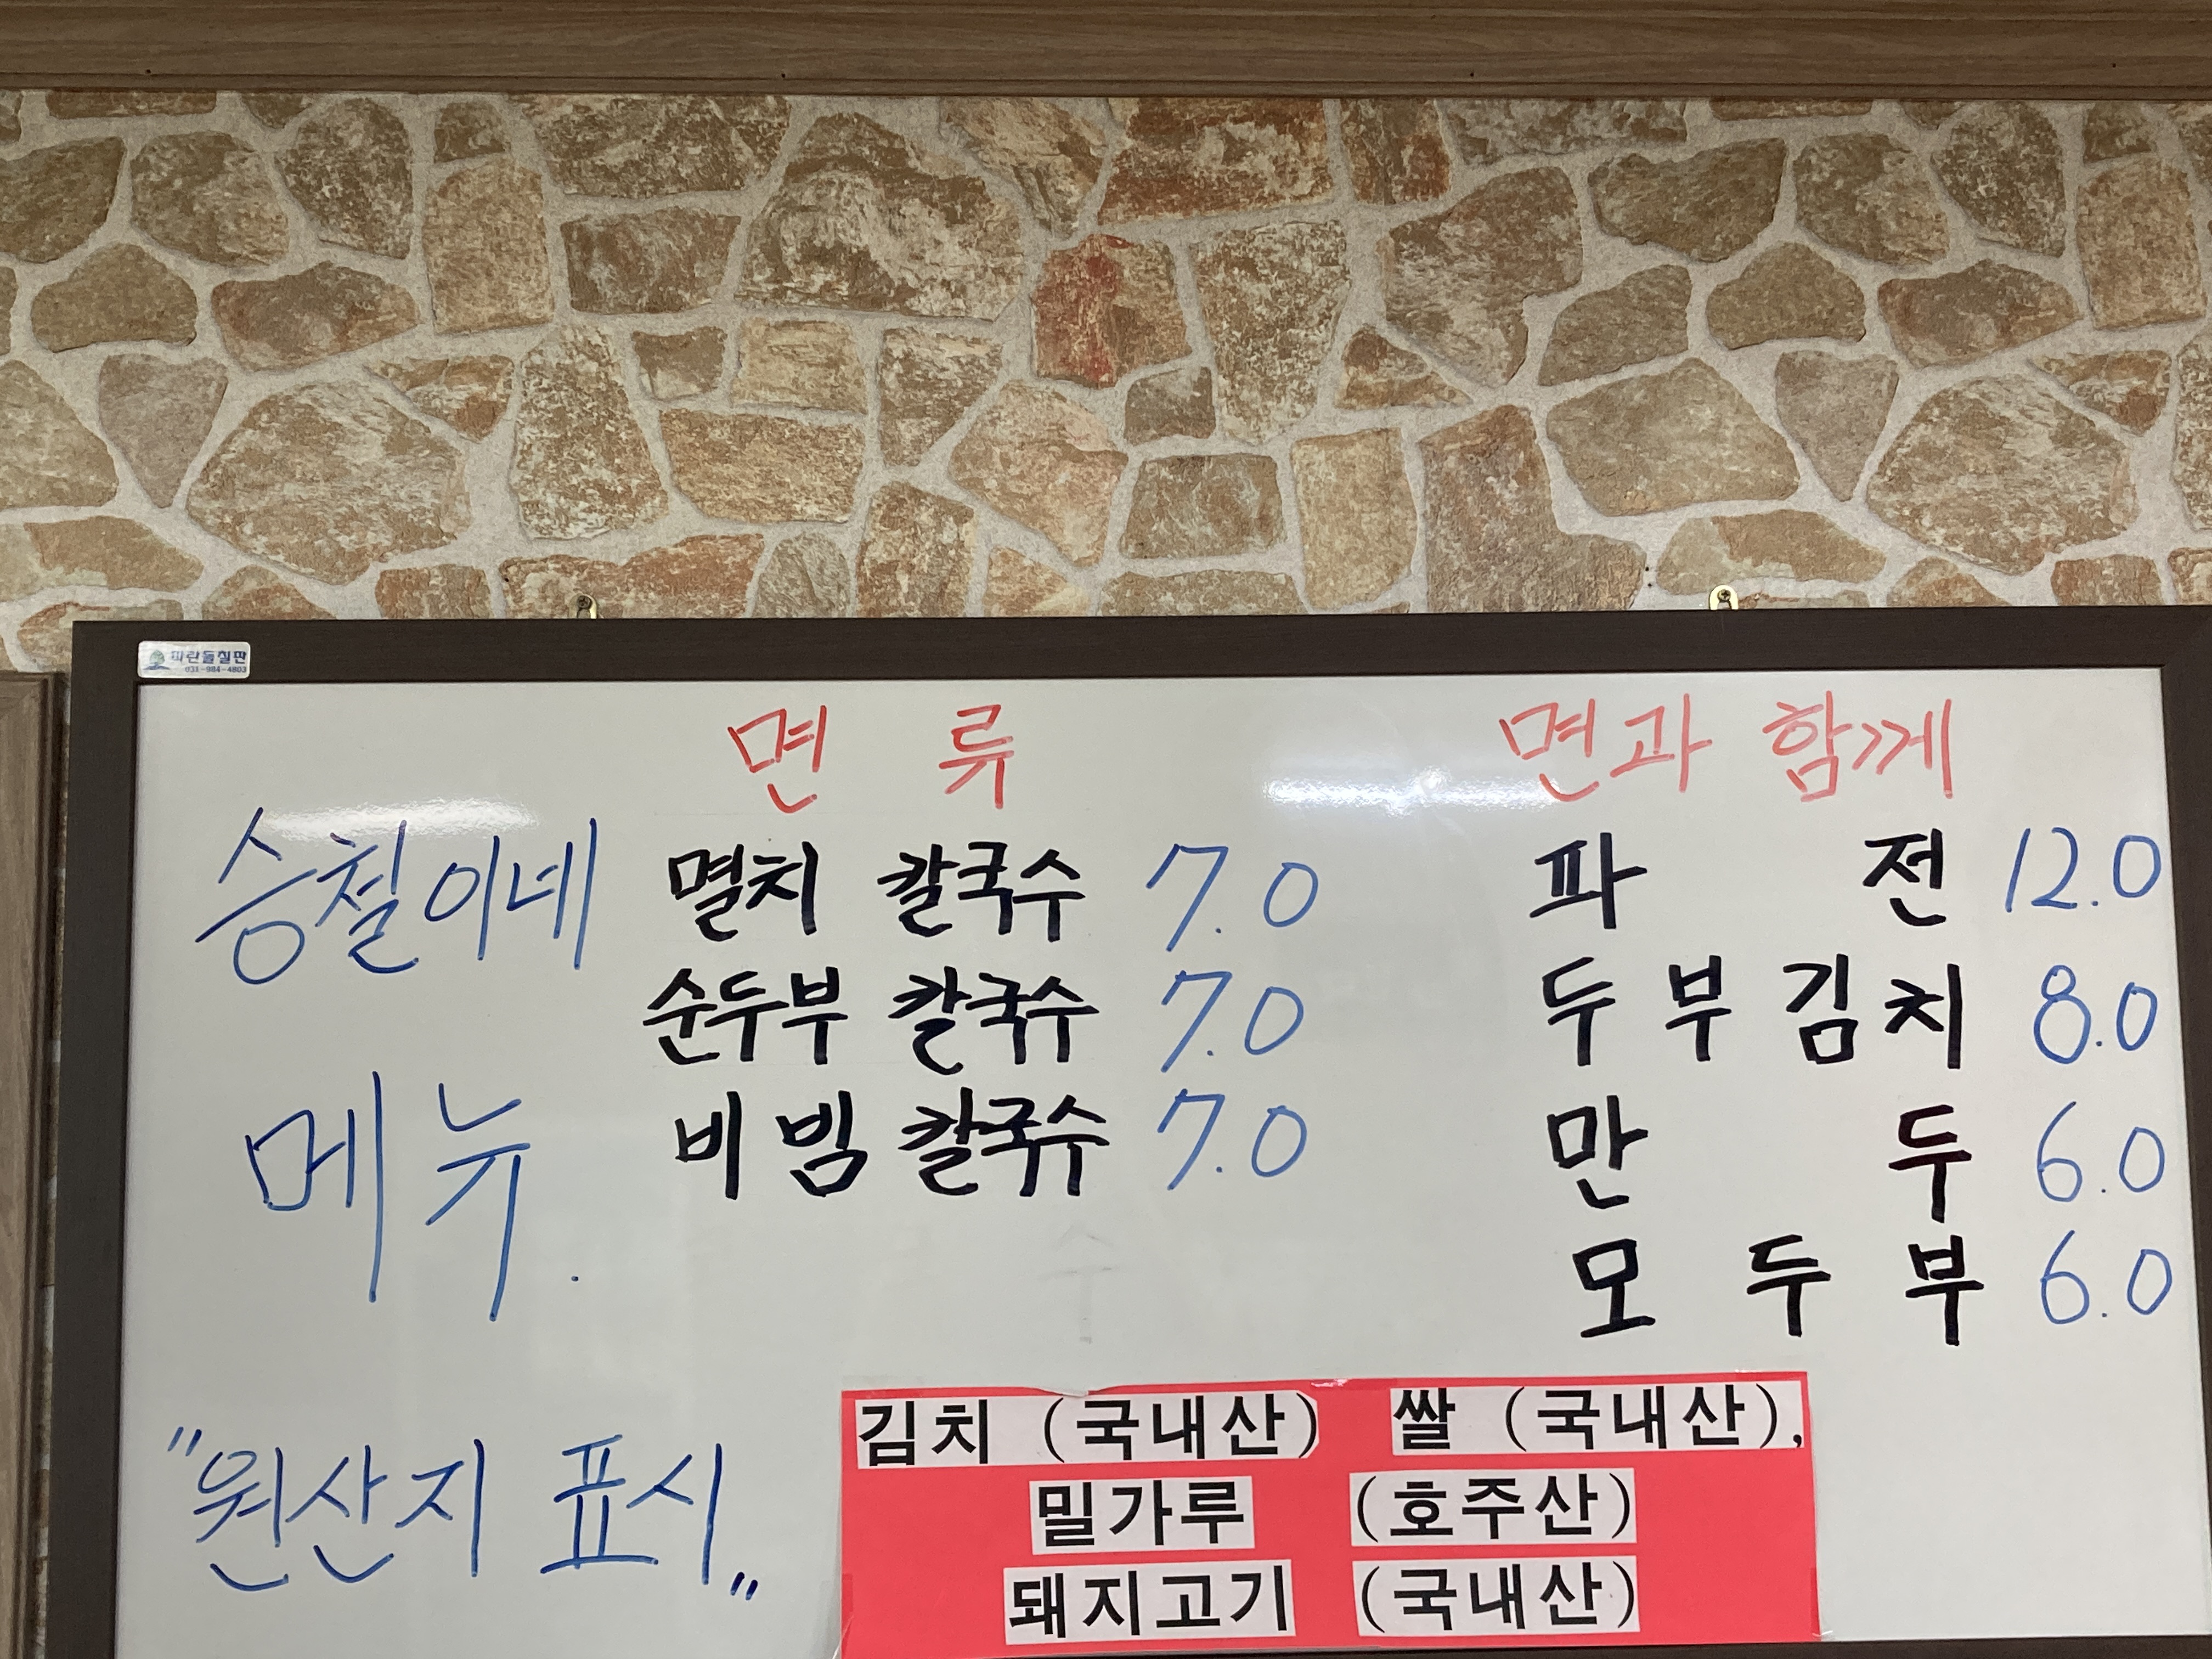 파란들칠판
031-984-4803
면 류
면과 함께
승철이네
메뉴.
멸치 칼국수 7.0
순두부 칼국수 7.0
비빔 칼국수 7.0
파 전 12.0
두부김치 8.0
만 두 6.0
모 두 부 6.0
"원산지 표시„
김치 (국내산) 쌀 (국내산),
밀가루 (호주산)
돼지고기 (국내산)